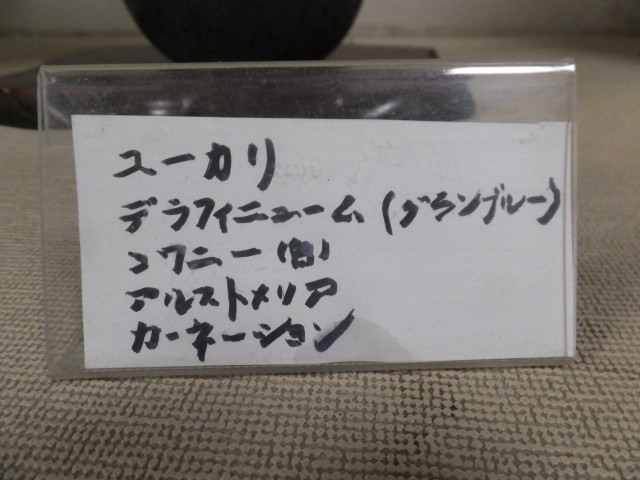 ユーカリ
デラフィニューム(グランブルー)
コワニー(白)
アルストメリア
カーネーション